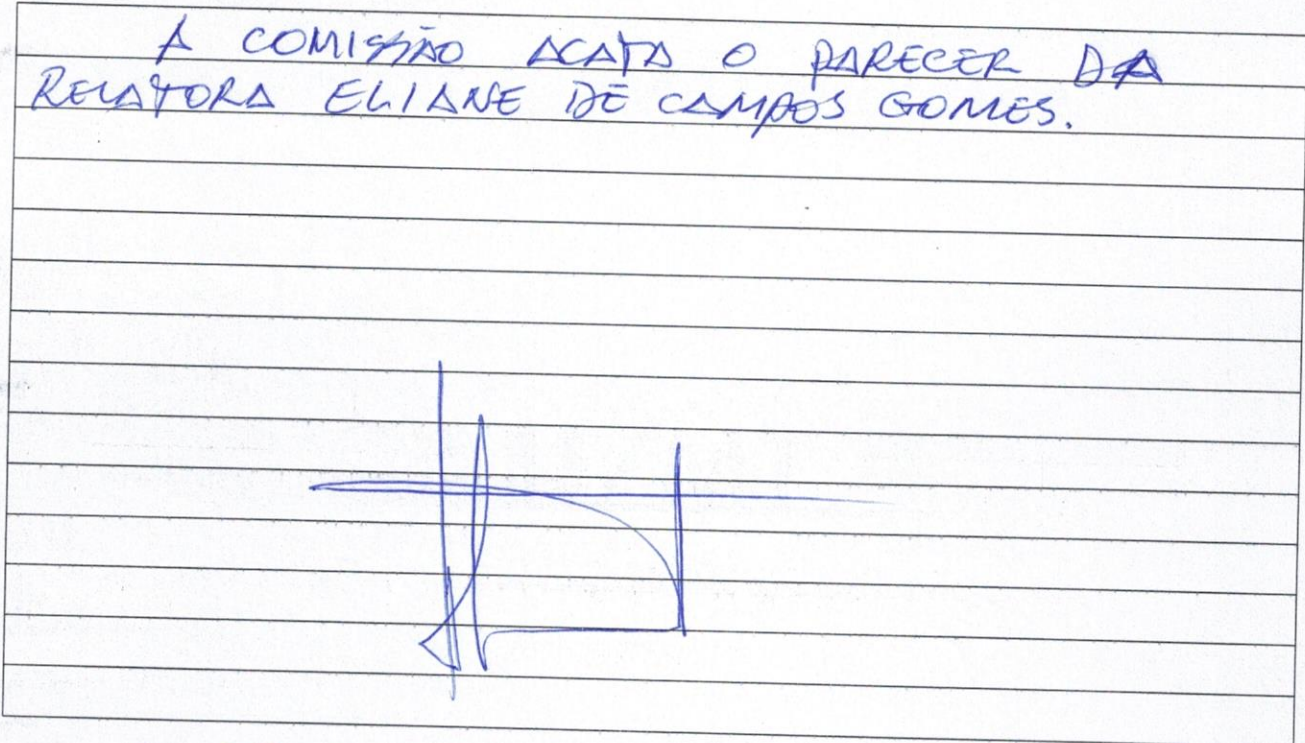 A COMISSÃO ACATA O PARECER DA
RELATORA ELIANE DE CAMPOS GOMES.